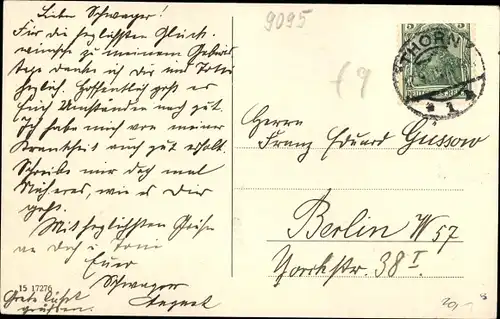 Lieber Schwager!
Für die herzlichsten Glück-
wünsche zu meinem Geburts
tage danke ich Dir und Totti
herzlich. Hoffentlich geht es
Euch Umständen nach gut.
Ich habe mich von meiner
Krankheit auch gut erholt.
Schreibe mir doch mal
Näheres, wie es Dir
geht.
Mit herzlichsten Grüßen
an Dich u.
Euer
Schwager
August
Grete läßt
grüßen.
15 17276
9095
5
THORN
1
Herrn
Franz Eduard Gussow
Berlin W 57
Yorckstr. 38 I